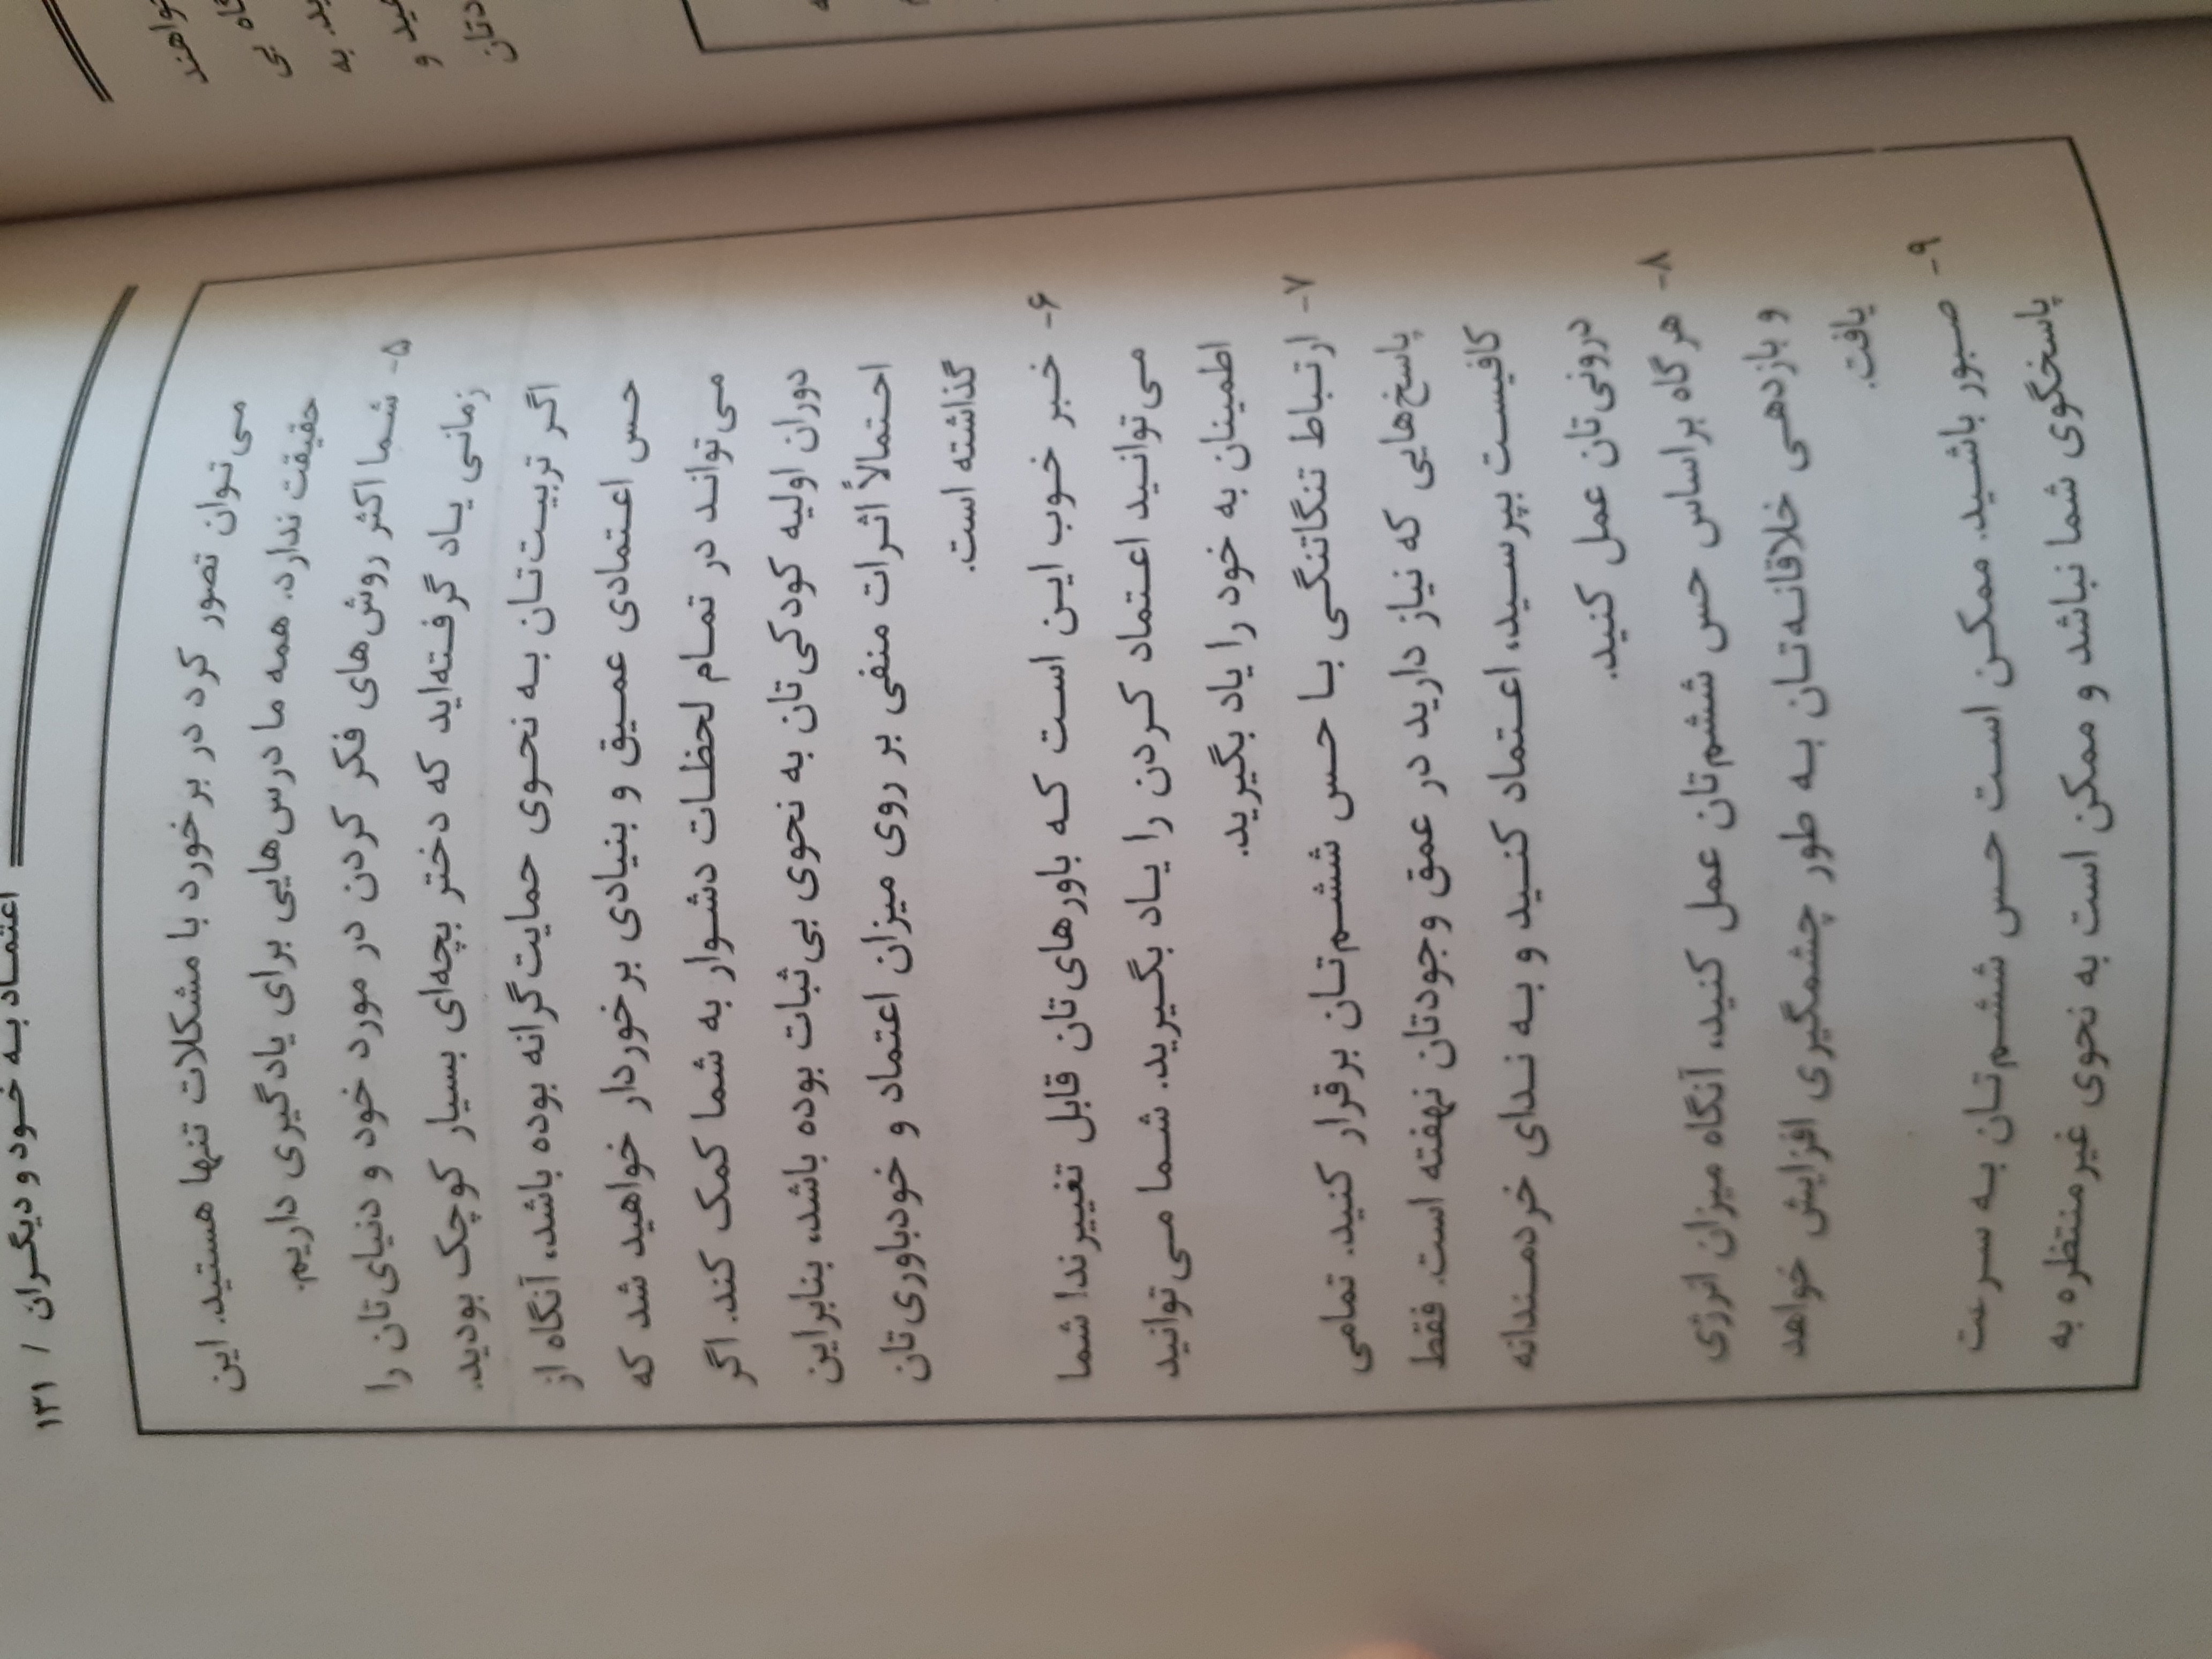 اعتماد به خود و دیگران / ۱۳۱
می‌توان تصور کرد در برخورد با مشکلات تنها هستید. این
حقیقت ندارد. همه ما درس‌هایی برای یادگیری داریم.
۵- شما اکثر روش‌های فکر کردن در مورد خود و دنیای‌تان را
زمانی یاد گرفته‌اید که دختر بچه‌ای بسیار کوچک بودید.
اگر تربیت‌تان به نحوی حمایت‌گرانه بوده باشد، آنگاه از
حس اعتمادی عمیق و بنیادی برخوردار خواهید شد که
می‌تواند در تمام لحظات دشوار به شما کمک کند. اگر
دوران اولیه کودکی‌تان به نحوی بی‌ثبات بوده باشد، بنابراین
احتمالاً اثرات منفی بر روی میزان اعتماد و خودباوری‌تان
گذاشته است.
۶- خبر خوب این است که باورهای‌تان قابل تغییرند! شما
می‌توانید اعتماد کردن را یاد بگیرید. شما می‌توانید
اطمینان به خود را یاد بگیرید.
۷- ارتباط تنگاتنگی با حس ششم‌تان برقرار کنید. تمامی
پاسخ‌هایی که نیاز دارید در عمق وجودتان نهفته است. فقط
کافیست بپرسید، اعتماد کنید و به ندای خردمندانه
درونی‌تان عمل کنید.
۸- هرگاه براساس حس ششم‌تان عمل کنید، آنگاه میزان انرژی
و بازدهی خلاقانه‌تان به طور چشمگیری افزایش خواهد
یافت.
۹- صبور باشید. ممکن است حس ششم‌تان به سرعت
پاسخگوی شما نباشد و ممکن است به نحوی غیرمنتظره به